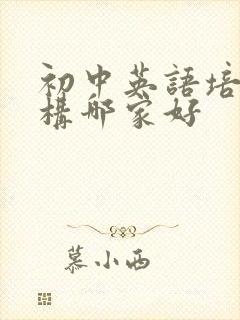 初中英語培
構哪家好
慕小西